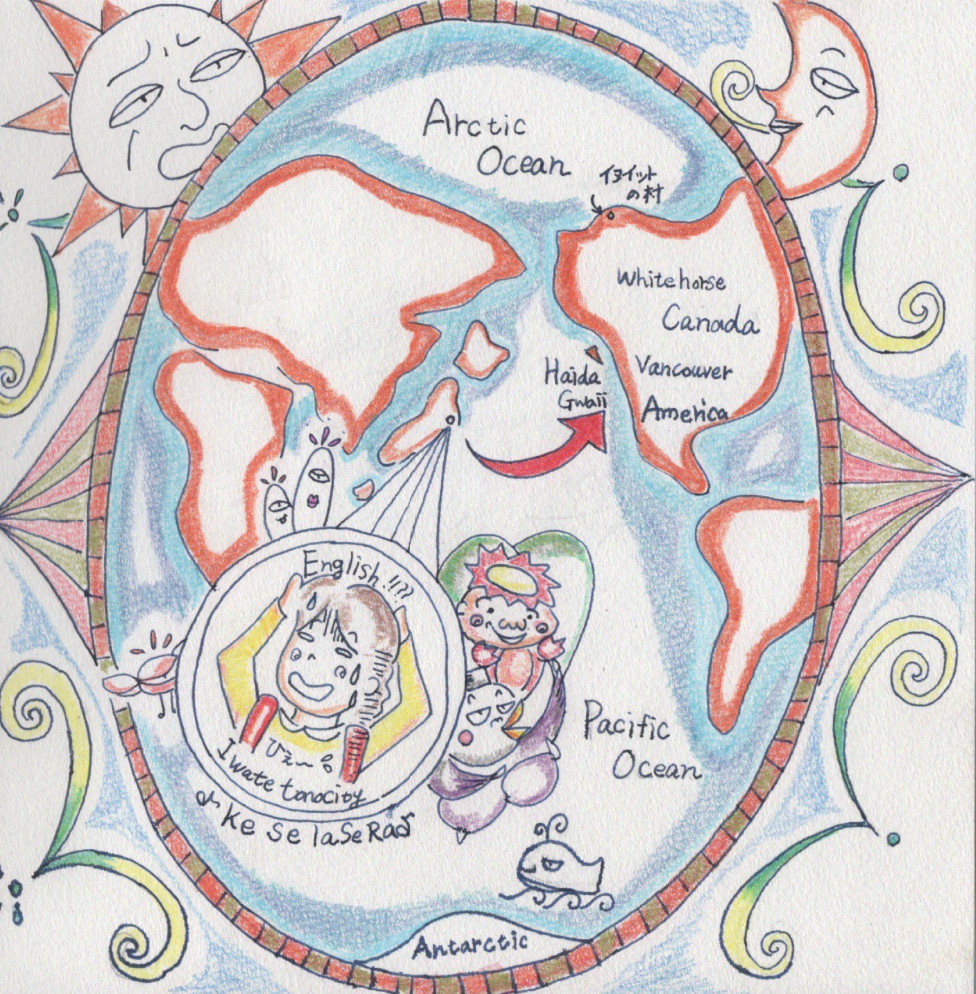 Arctic
Ocean
イヌイット
の村
Whitehorse
Canada
Vancouver
America
Haida
Gwaii
English!!??
ひえ〜。
Iwate tonocity
Ke Se la Se Ra
Pacific
Ocean
Antarctic